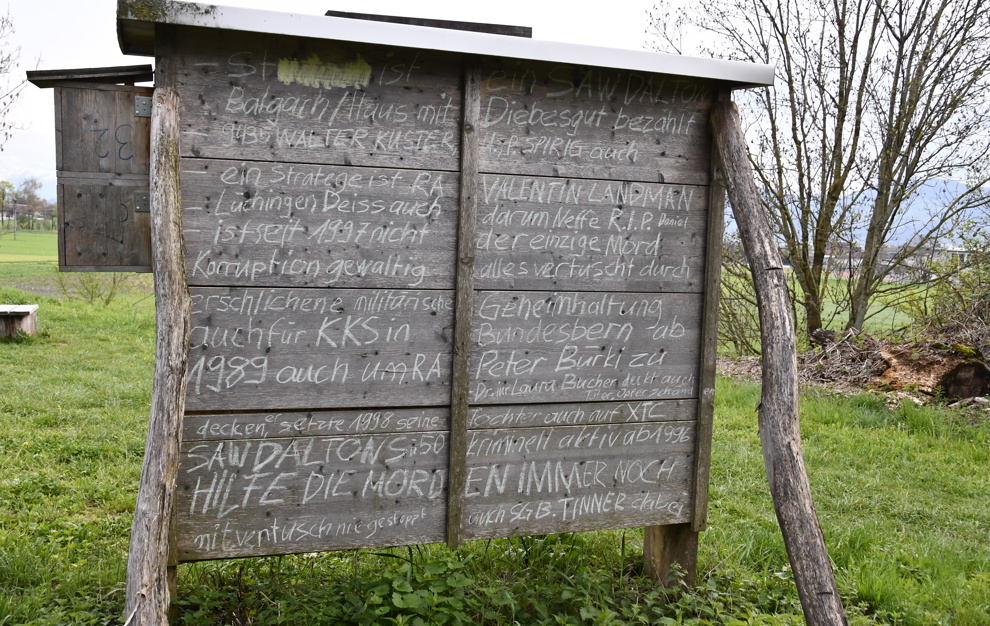 - St ist ein SAWDALTON
Balgach/Haus mit Diebesgut bezahlt
- 9435 WALTER KÜSTER SPIRIG auch
- ein Stratege ist RA VALENTIN LANDMAN
- Lüchingen Deiss auch darum Neffe R.I.P. Daniel
- ist seit 1997 nicht der einzige Mord
Korruption gewaltig alles vertuscht durch
erschlichene militärische Geheimhaltung
auch für KKS in Bundesbern ab
1989 auch um RA Peter Bürki zu
Dr. iur Laura Bucher deckt auch
Täter, Opfer
decken, er setzte 1998 seine Tochter auch auf XTC
SAWDALTONS ü50 kriminell aktiv ab 1996
HILFE DIE MORDEN IMMER NOCH
mit ventusch nie gestoppt auch SG B. TINNER dabei
32